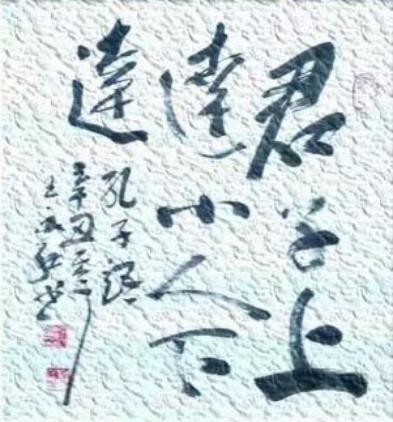 君子上
達小人下
達
孔子語
辛丑
王 书